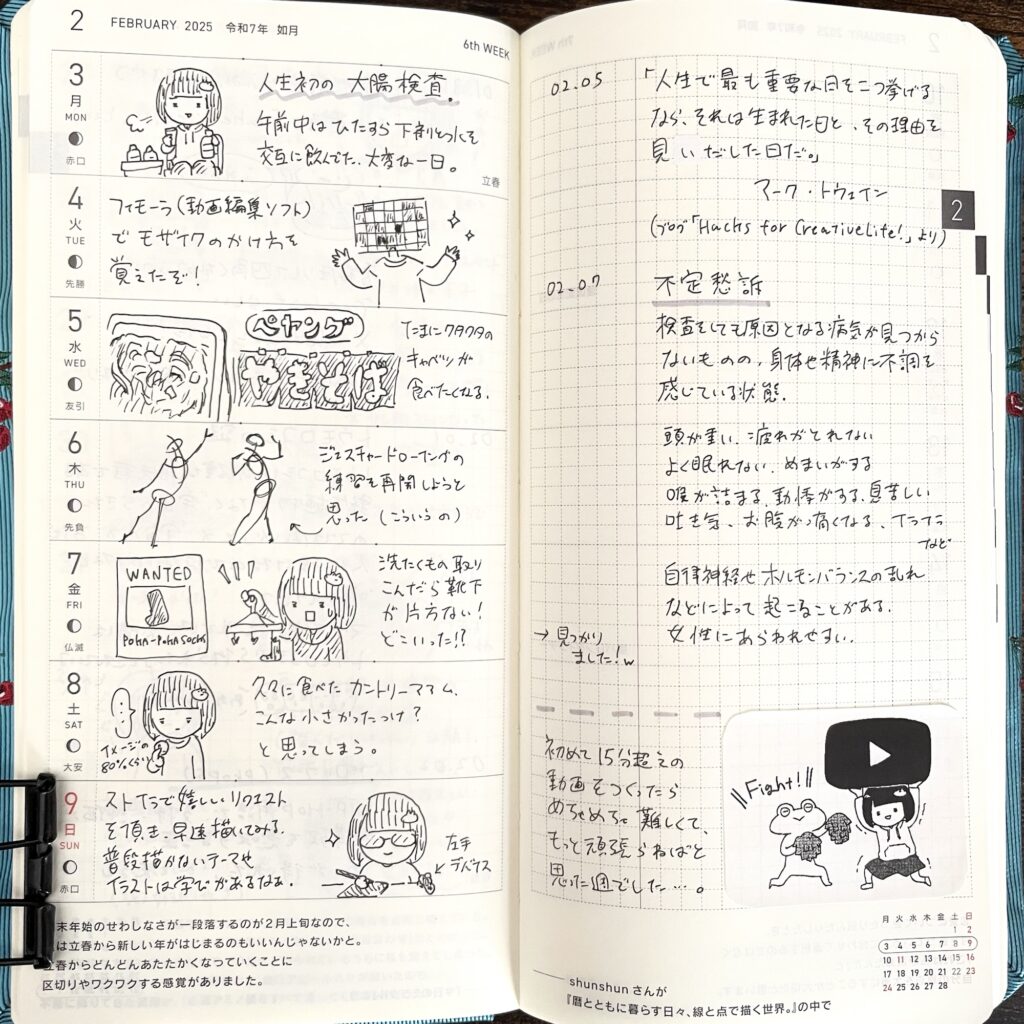 2 FEBRUARY 2025 令和7年 如月
6th WEEK
3
月
MON
赤口
人生初の 大腸検査。
午前中はひたすら下剤と水を
交互に飲んでた、大変な一日。
立春
4
火
TUE
先勝
フィモーラ(動画編集ソフト)
でモザイクのかけ方を
覚えたぞ!
5
水
WED
友引
ペヤング
やきそば
たまにクタクタの
キャベツが
食べたくなる。
6
木
THU
先負
ジェスチャードローイングの
練習を再開しようと
思った(こういうの)
7
金
FRI
仏滅
WANTED
POHA-POHA SOCKS
洗たくもの取り
こんだら靴下
が片方ない!
どこいった!?
8
土
SAT
大安
イメージの
80%くらい
久々に食べたカントリーマアム、
こんな小さかったっけ?
と思ってしまう。
9
日
SUN
赤口
ストイラで嬉しいリクエスト
を頂き、早速描いてみる。
普段描かないテーマや
イラストは学びがあるなぁ。
左手
デバイス
末年始のせわしなさが一段落するのが2月上旬なので、
は立春から新しい年がはじまるのもいいんじゃないかと。
立春からどんどんあたたかくなっていくことに
区切りやワクワクする感覚がありました。
02.05
「人生で最も重要な日を二つ挙げる
なら、それは生まれた日と、その理由を
見いだした日だ。」
マーク・トウェイン
(ブログ「Hacks for CreativeLife!」より)
2
02.07
不定愁訴
検査をしても原因となる病気が見つから
ないものの、身体や精神に不調を
感じている状態。
頭が重い、疲れがとれない
よく眠れない、めまいがする
喉が詰まる、動悸がする、息苦しい
吐き気、お腹が痛くなる、イライラ
など
自律神経やホルモンバランスの乱れ
などによって起こることがある。
女性にあらわれやすい。
→見つかり
ました!w
初めて15分超えの
動画をつくったら
めちゃめちゃ難しくて、
もっと頑張らねばと
思った週でした…。
Fight!!
月 火 水 木 金 土 日
1 2
3 4 5 6 7 8 9
10 11 12 13 14 15 16
17 18 19 20 21 22 23
24 25 26 27 28
shunshunさんが
『暦とともに暮らす日々、線と点で描く世界。』の中で